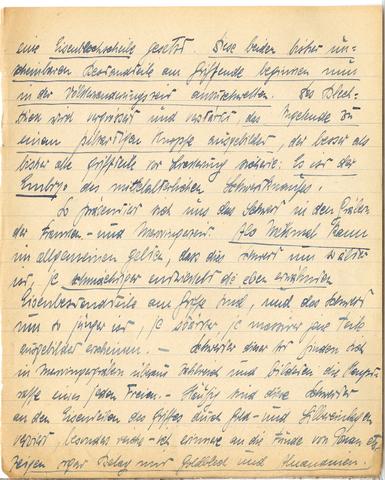 eine Eisenblechscheibe gesetzt. Diese beiden bisher un-
scheinbaren Bestandteile am Griffende beginnen nun
in der Völkerwanderungszeit anzuschwellen. Das Blech-
wird vergrössert und verstärkt, das Angelende zu
einem pilzartigen Knopfe ausgebildet, der besser als
bisher alle Griffteile vor Lockerung sicherte: Es ist der
Embryo des mittelalterlichen Schwertknaufes.
So präsentiert sich uns das Schwert in den Gräbern
der Franken- und Merowingerzeit. Als Merkmal kann
im allgemeinen gelten, dass die Schwert um so älter
ist, je schmächtiger entwickelt die eben erwähnten
Eisenbestandteile am Griffe sind, und das Schwert
um so jünger ist, je stärker, je massiver jene Teile
ausgebildet erscheinen. – Schwerter dieser Art finden sich
in Merowingergräbern überaus und bildeten die Haupt-
waffe eines jeden Freien. – Häufig sind diese Schwerter
an den Eisenteilen des Griffes durch Gold- und Silbereinlagen
verziert, besonders reiche – ich erinnere an die Funde von
zeigen sogar Belag mit Goldblech und Almandinen.